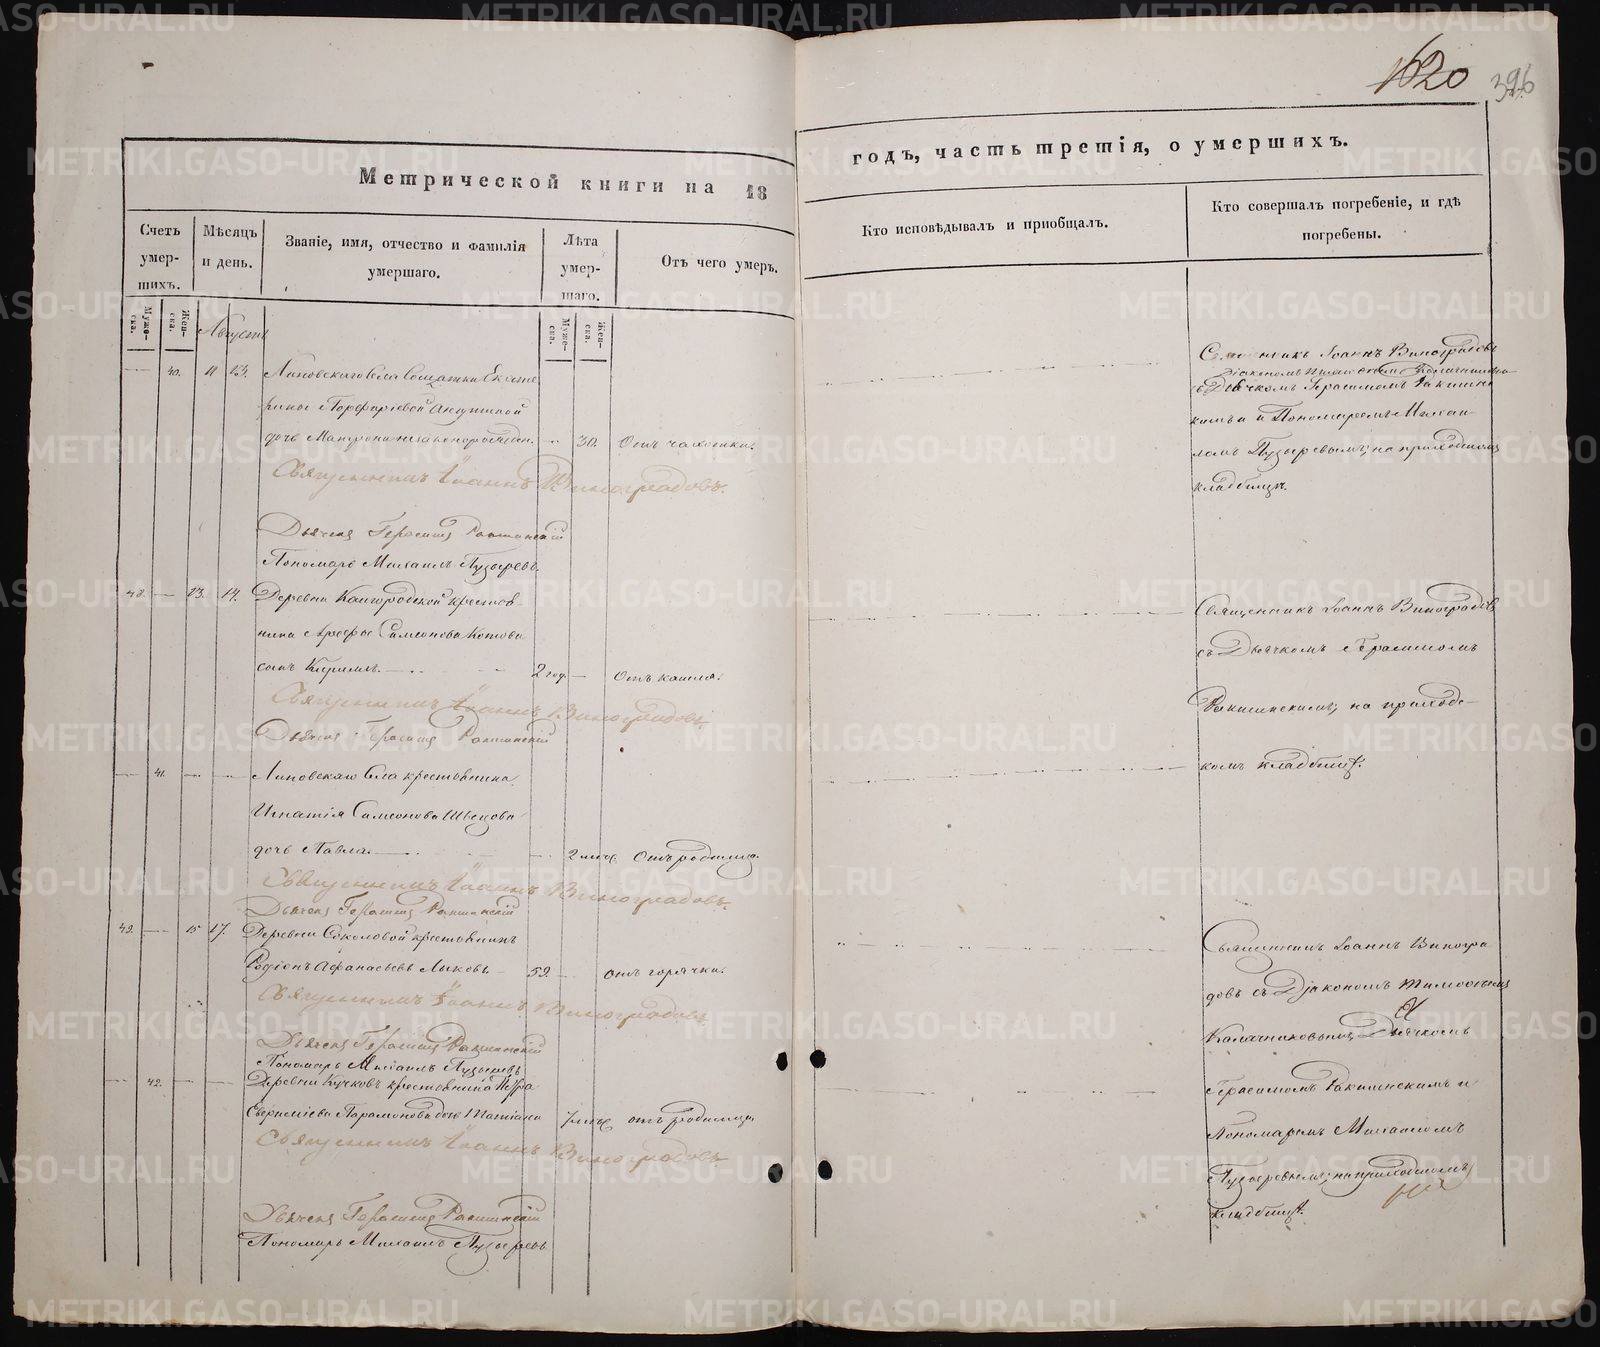 1620 396
Метрической книги на 18
годъ, часть третія, о умершихъ.
Счетъ умер-шихъ.
Мѣсяцъ и день.
Званіе, имя, отчество и фамилія умершаго.
Лѣта умер-шаго.
Отъ чего умеръ.
Кто исповѣдывалъ и пріобщалъ.
Кто совершалъ погребеніе, и гдѣ погребены.
Муже-ска.
Жен-ска.
Муже-ска.
Жен-ска.
Августъ
40. 11 13. Липовскаго села Солдатки Екате
рины Порфирьевой
дочь Матрона незаконорожден. 30. Отъ чахотки.
Священникъ Іоаннъ Виноградовъ.
Дьячекъ Герасимъ Ракшинскій
Пономарь Михаилъ Пузыревъ.
13. 14. Деревни крестья
нина Арефы Самсонова Котова
сынъ 2 год. Отъ кашля.
Священникъ Іоаннъ Виноградовъ
Дьячекъ Герасимъ Ракшинскій
41. Липовскаго Села крестьянина
Игнатія Самсонова Швецова
дочь Павла. 2 мѣс. Отъ родимца.
Священникъ Іоаннъ Виноградовъ.
Дьячекъ Герасимъ Ракшинскій
42. 15 17. Деревни Соколовой крестьянинъ
Родіонъ Афанасьевъ Лыковъ 52. отъ горячки.
Священникъ Іоаннъ Виноградовъ
Дьячекъ Герасимъ Ракшинскій
Пономарь Михаилъ Пузыревъ
42. Деревни крестьянина Петра
Парамонова дочь Татіана мѣс. отъ родимца.
Священникъ Іоаннъ Виноградовъ
Дьячекъ Герасимъ Ракшинскій
Пономарь Михаилъ Пузыревъ
Священникъ Іоаннъ Виноградовъ
съ Дьячкомъ Герасимомъ Ракшинс
кимъ и Пономаремъ Михаи
ломъ Пузыревымъ; на приходскомъ
кладбищѣ.
Священникъ Іоаннъ Виноградовъ
съ Дьячкомъ Герасимомъ
Ракшинскимъ; на приходс-
комъ кладбищѣ.
Священникъ Іоаннъ Виногра
довъ съ Діакономъ Тимофеемъ
Калачниковымъ, Дьячкомъ
Герасимомъ Ракшинскимъ и
Пономаремъ Михаиломъ
Пузыревымъ; на приходскомъ
кладбищѣ.
METRIKI.GASO-URAL.RU